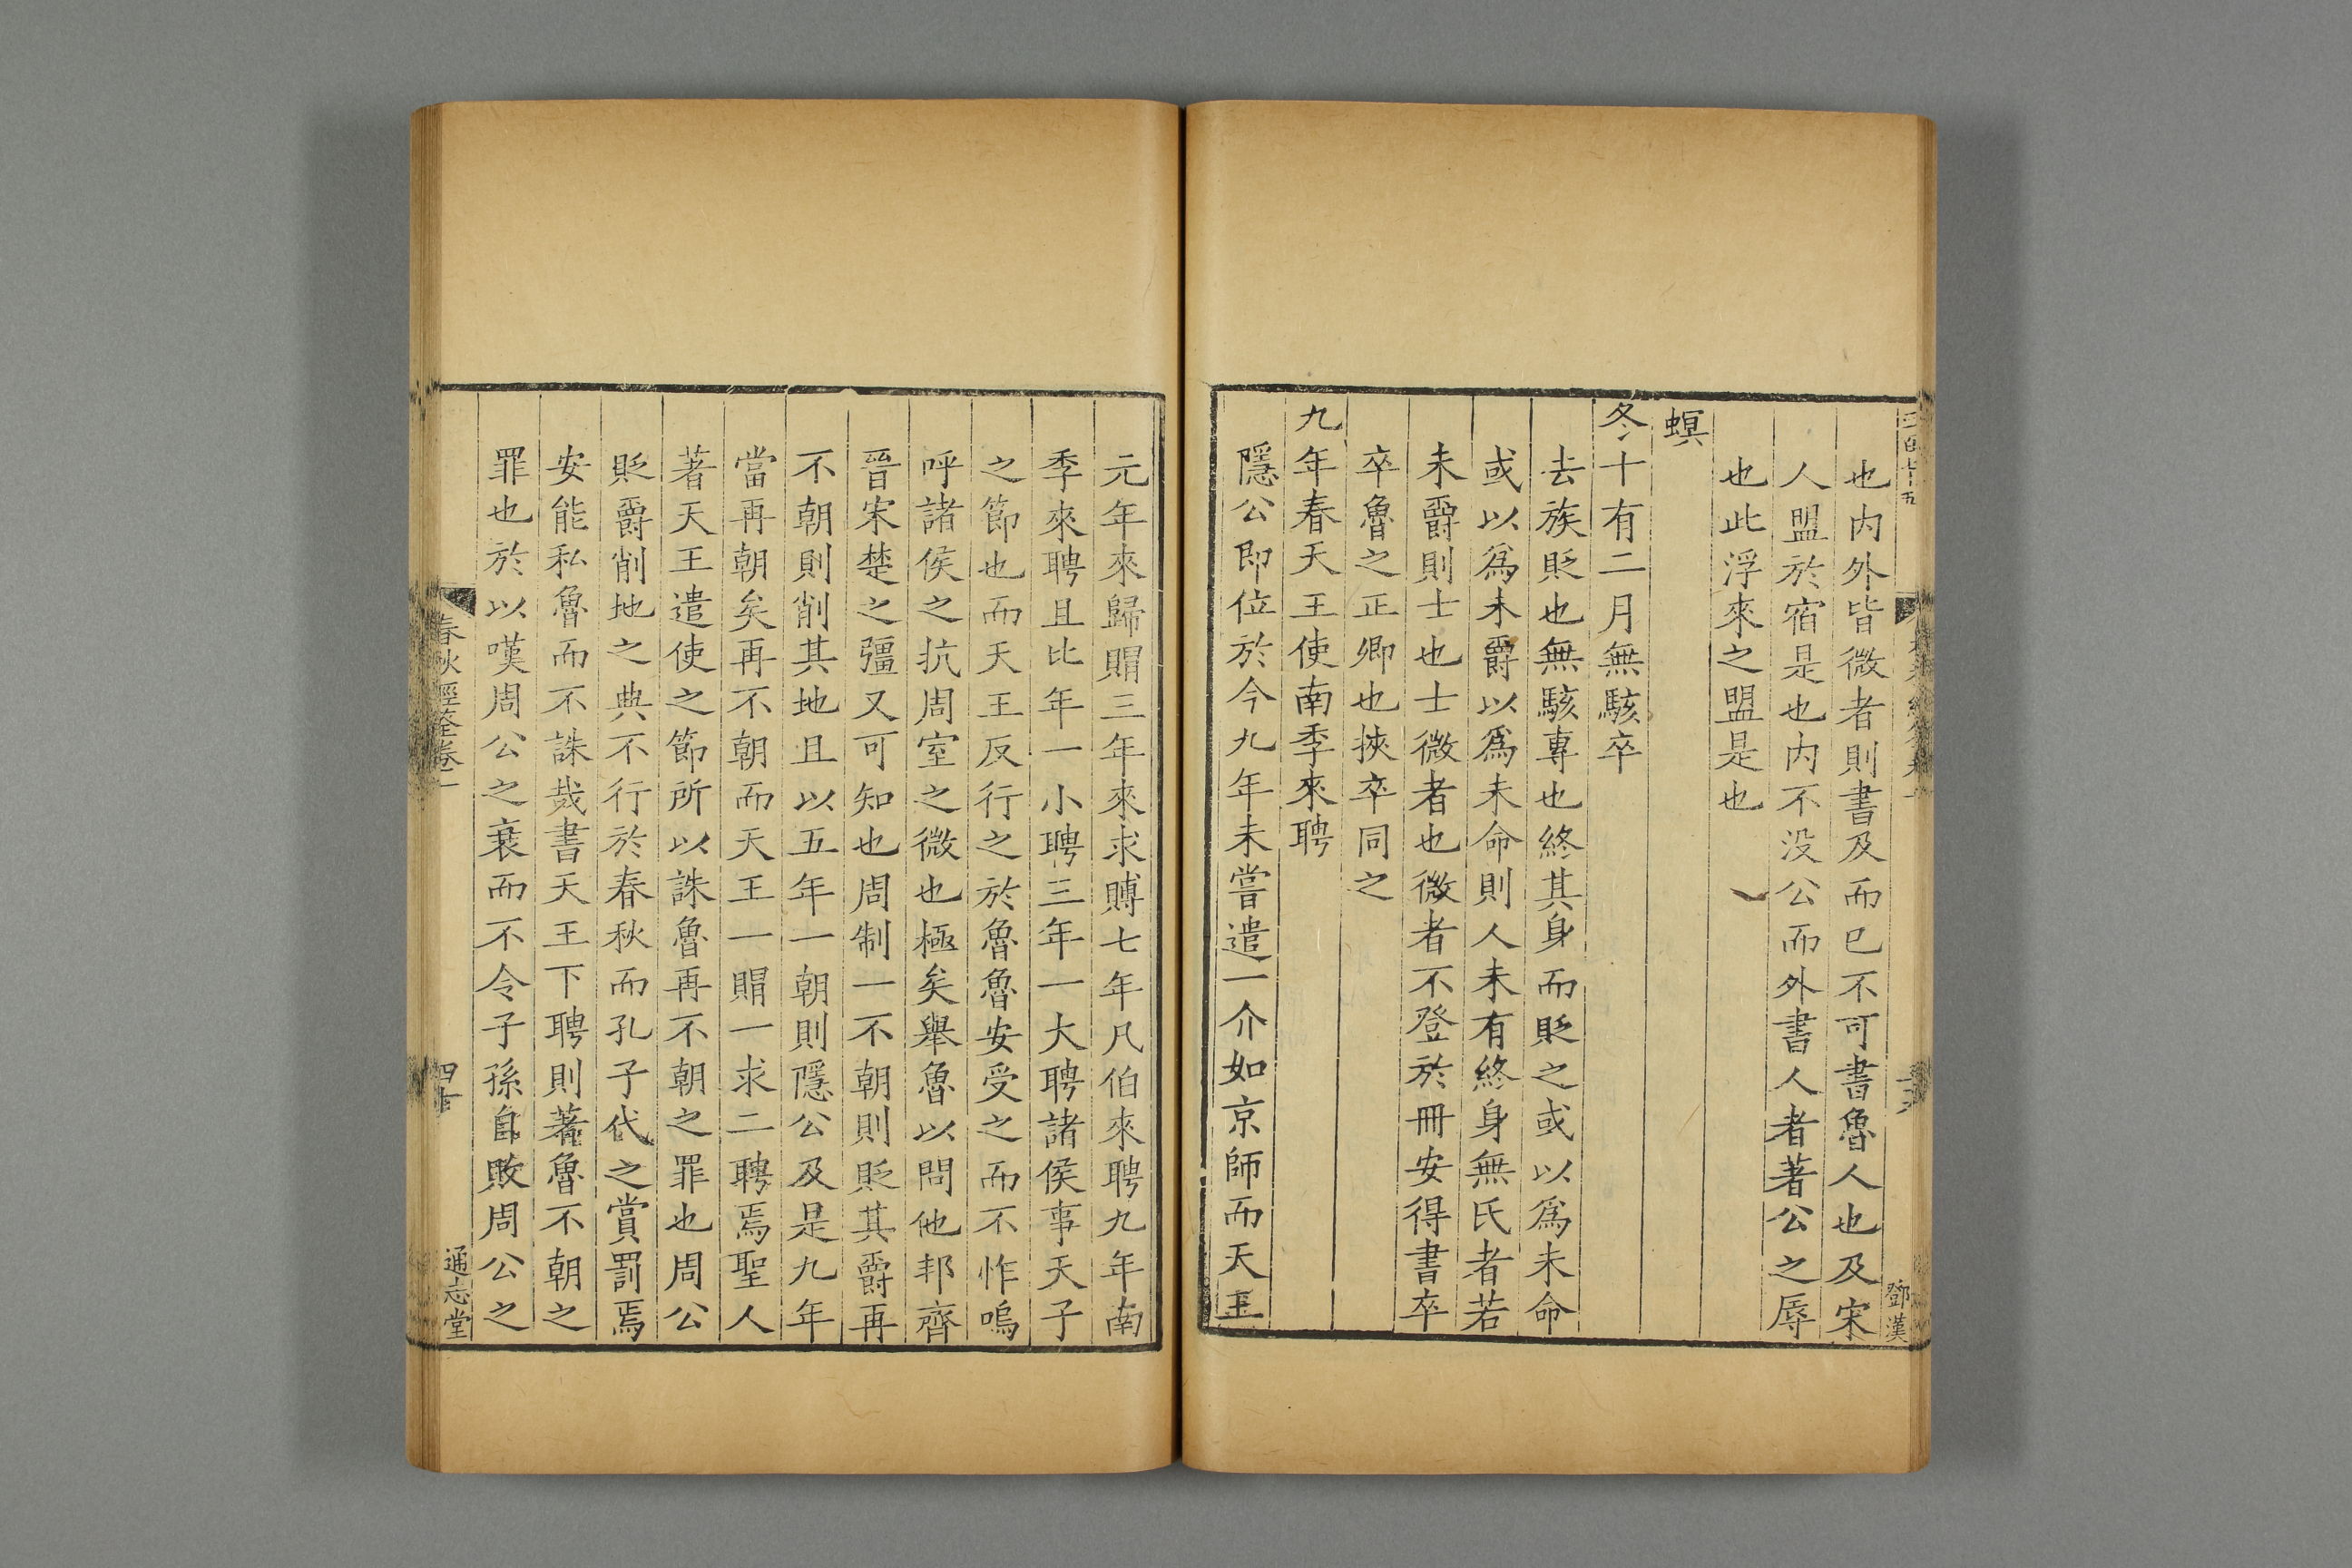 也内外皆微者則書及而已不可書魯人也及宋
人盟於宿是也内不没公而外書人者著公之辱
也此浮來之盟是也
螟
冬十有二月無駭卒
去族貶也無駭專也終其身而貶之或以爲未命
或以爲未爵以爲未命則人未有終身無氏者若
未爵則士也士微者也微者不登於冊安得書卒
卒魯之正卿也挾卒同之
九年春天王使南季來聘
隱公即位於今九年未嘗遣一介如京師而天王
鄧漢
元年來歸賵三年來求賻七年凡伯來聘九年南
季來聘且比年一小聘三年一大聘諸侯事天子
之節也而天王反行之於魯魯安受之而不怍嗚
呼諸侯之抗周室之微也極矣舉魯以問他邦齊
晉宋楚之彊又可知也周制一不朝則貶其爵再
不朝則削其地且以五年一朝則隱公及是九年
當再朝矣再不朝而天王一賵一求二聘焉聖人
著天王遣使之節所以誅魯再不朝之罪也周公
貶爵削地之典不行於春秋而孔子代之賞罰焉
安能私魯而不誅哉書天王下聘則著魯不朝之
罪也於以嘆周公之衰而不令子孫自敗周公之
春秋經筌卷一
通志堂